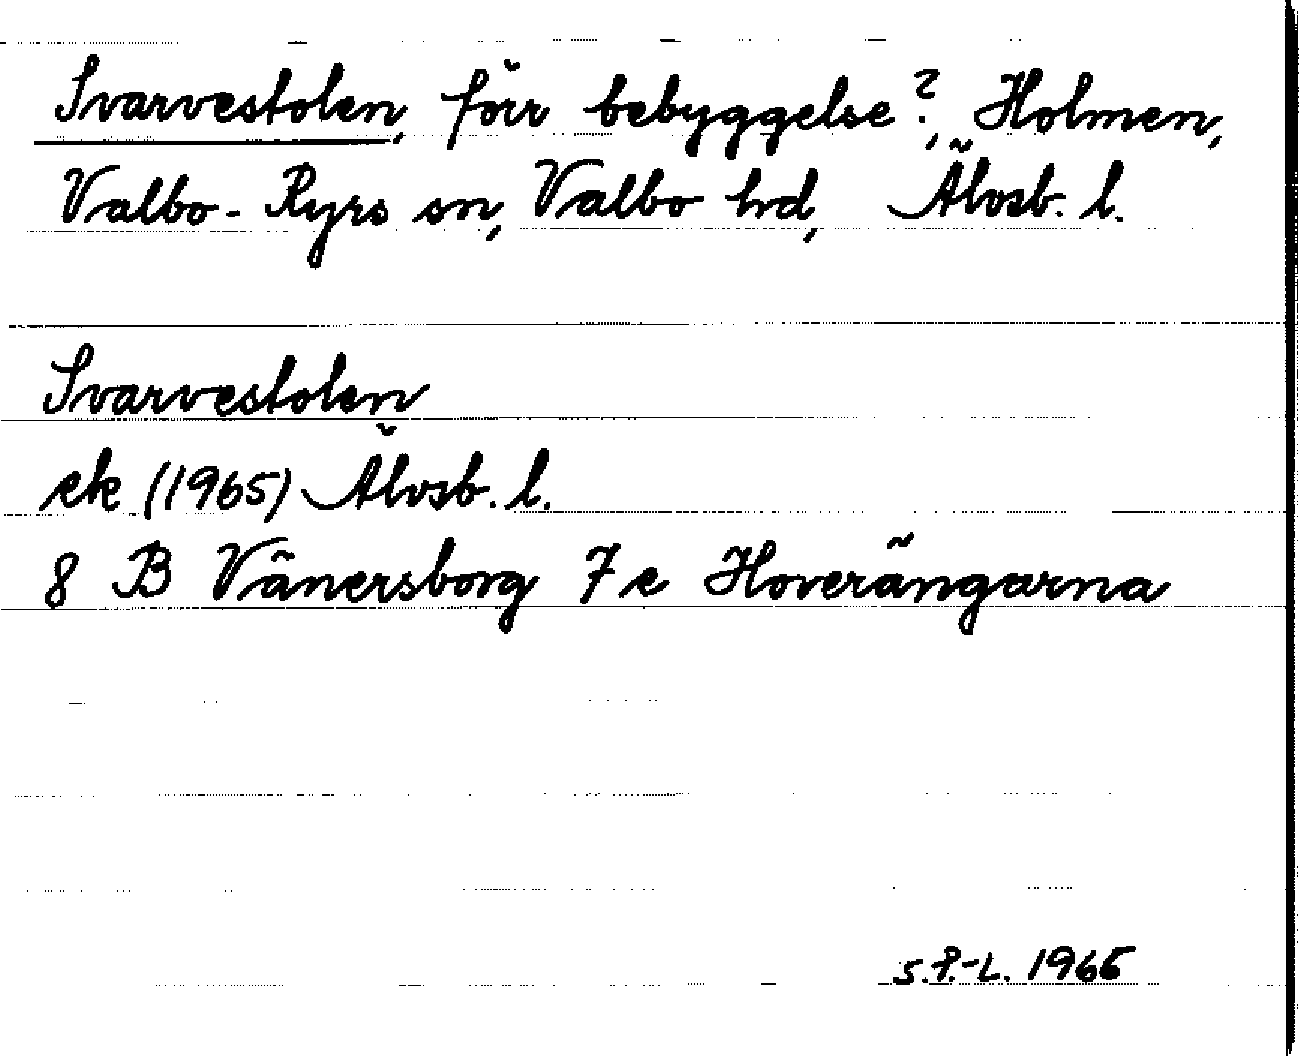 Svarvestolen, förr bebyggelse?, Holmen,
Valbo-Ryrs sn, Valbo hd, Älvsb. l.
Svarvestolen
ek (1965) Älvsb. l.
8 B Vänersborg 7 e Hoverängarna
S.P.-L. 1966